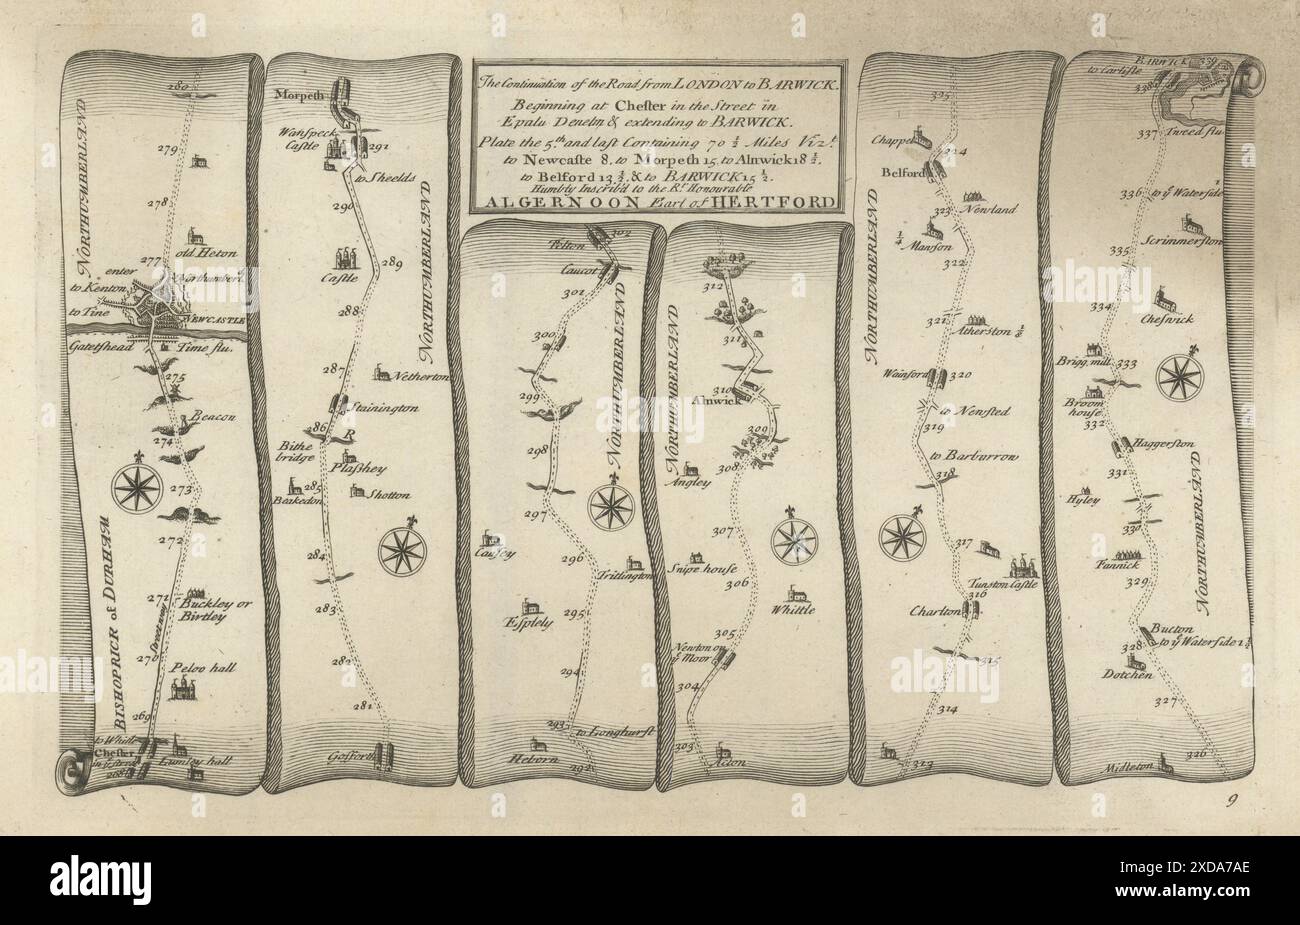 The Continuation of the Road from LONDON to BARWICK.
Beginning at Chester in the Street in
Epalu Denelm & extending to BARWICK.
Plate the 5th and last Containing 70 ½ Miles Viz.t
to Newcastle 8. to Morpeth 15. to Alnwick 18 ½.
to Belford 13 ½ & to BARWICK 15 ½.
Humbly Inscrib'd to the Rt. Honourable
ALGERNOON Earl of HERTFORD
280
NORTHUMBERLAND
279
278
old Heton
277
enter
Northumberl.
to Kenton
to Tine
NEWCASTLE
Gateshead
Time flu.
275
Beacon
274
273
272
BISHOPRICK of DURHAM
271
Buckley or
Birtley
Street way
270
Pelov hall
269
to White
Chester
in ye Street
Lumley hall
268
Morpeth
Wanspeck
Castle
291
to Sheelds
290
NORTHUMBERLAND
289
Castle
288
287
Netherton
Stainington
286
R
Bithe
bridge
Plashey
285
Beakedon
Shotton
284
283
282
281
Gosford
302
Pelton
Caucot
301
300
NORTHUMBERLAND
299
298
297
Causey
296
Tritlington
Esplely
295
294
293
to Longhurst
Heborn
292
312
NORTHUMBERLAND
311
310
Alnwick
309
308
Angley
307
Snipe house
306
Whittle
305
Newton on
ye Moor
304
303
Acton
325
Chappel
324
Belford
NORTHUMBERLAND
323
Newland
¼
Manson
322
321
Atherston ½
Wainford
320
to Newsted
319
to Barburrow
318
317
Tunston Castle
316
Charlton
315
314
313
BARWICK
339
to Carlisle
338
Tweed flu.
337
336
to ye Waterside
Scrimmerston
335
334
Cheswick
Brigg mill
333
Broom
house
332
Haggerston
331
Hyley
NORTHUMBERLAND
330
Fannick
329
Bucton
to ye Waterside 1½
328
Dotchen
327
Midleton
326
9
alamy
Image ID: 2XDA7AE
www.alamy.com